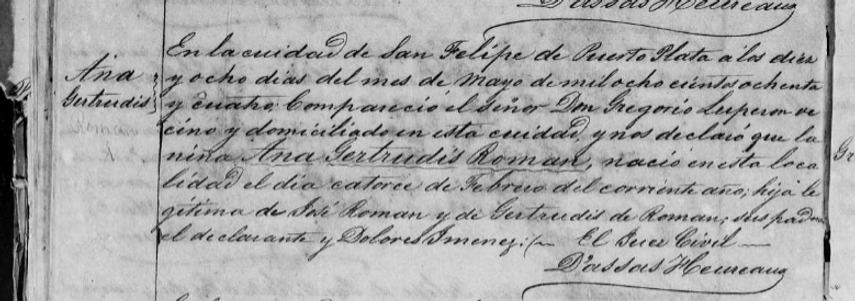 D'assas Heureaux
Ana
Gertrudis
En la cuidad de San Felipe de Puerto Plata a los diez
y ocho dias del mes de Mayo de mil ocho cientos ochenta
y cuatro: Compareció el Señor Don Gregorio Luperon ve
cino y domiciliado en esta cuidad, y nos declaró que la
niña Ana Gertrudis Roman, nació en esta loca
lidad el dia catorce de Febrero del corriente año; hija le
gitima de José Roman y de Gertrudis de Roman; sus padrin
el declarante y Dolores Jmenez: El Juez Civil
D'assas Heureaux
Gr